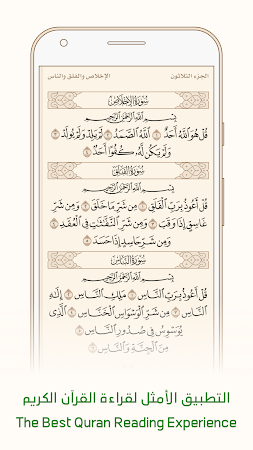 الجزء الثلاثون الإخلاص والفلق والناس
سُورَةُ الإِخْلَاصِ
بِسْمِ ٱللَّهِ ٱلرَّحْمَٰنِ ٱلرَّحِيمِ
قُلْ هُوَ ٱللَّهُ أَحَدٌ ١ ٱللَّهُ ٱلصَّمَدُ ٢ لَمْ يَلِدْ وَلَمْ يُولَدْ ٣
وَلَمْ يَكُن لَّهُۥ كُفُوًا أَحَدٌۢ ٤
سُورَةُ الفَلَقِ
بِسْمِ ٱللَّهِ ٱلرَّحْمَٰنِ ٱلرَّحِيمِ
قُلْ أَعُوذُ بِرَبِّ ٱلْفَلَقِ ١ مِن شَرِّ مَا خَلَقَ ٢ وَمِن شَرِّ
غَاسِقٍ إِذَا وَقَبَ ٣ وَمِن شَرِّ ٱلنَّفَّٰثَٰتِ فِى ٱلْعُقَدِ ٤
وَمِن شَرِّ حَاسِدٍ إِذَا حَسَدَ ٥
سُورَةُ النَّاسِ
بِسْمِ ٱللَّهِ ٱلرَّحْمَٰنِ ٱلرَّحِيمِ
قُلْ أَعُوذُ بِرَبِّ ٱلنَّاسِ ١ مَلِكِ ٱلنَّاسِ ٢ إِلَٰهِ
ٱلنَّاسِ ٣ مِن شَرِّ ٱلْوَسْوَاسِ ٱلْخَنَّاسِ ٤ ٱلَّذِى
يُوَسْوِسُ فِى صُدُورِ ٱلنَّاسِ ٥
مِنَ ٱلْجِنَّةِ وَٱلنَّاسِ ٦
التطبيق الأمثل لقراءة القرآن الكريم
The Best Quran Reading Experience